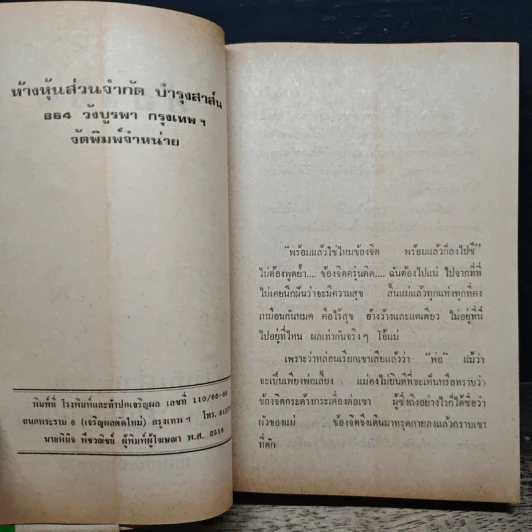 ห้างหุ้นส่วนจำกัด บำรุงสาส์น
884 วังบูรพา กรุงเทพ ฯ
จัดพิมพ์จำหน่าย
พิมพ์ที่ โรงพิมพ์และทำปกเจริญผล เลขที่ 110/
ถนนพระราม ๑ (เจริญผลตัดใหม่) กรุงเทพ ฯ โทร.
นายพินิจ ผู้พิมพ์ผู้โฆษณา พ.ศ. 2516
“พร้อมแล้วใช่ไหมข้องจิต พร้อมแล้วก็ลงไปซี”
ไม่ต้องพูดย้ำ.... ข้องจิตครุ่นคิด.... ฉันต้องไปแน่ ไปจากที่ที่
ไม่เคยนึกฝันว่าจะมีความสุข สิ้นแม่แล้วทุกแห่งทุกที่คง
เหมือนกันหมด คือไร้สุข อ้างว้างและเดียวดาย ไม่อยู่ที่นี่
ไปอยู่ที่ไหน ผลเท่ากันจริง ๆ โอ้แม่
เพราะว่าหล่อนเรียกเขาเสียแล้วว่า “พ่อ” แม้ว่า
จะเป็นเพียงพ่อเลี้ยง แม่คงไม่ยินดีที่จะเห็นหรือทราบว่า
ข้องจิตกระด้างกระเดื่องต่อเขา ผู้ซึ่งถึงอย่างไรก็ได้ชื่อว่า
ผัวของแม่ ข้องจิตจึงเดินมาทรุดกายลงแล้วกราบเขา
ที่ตัก